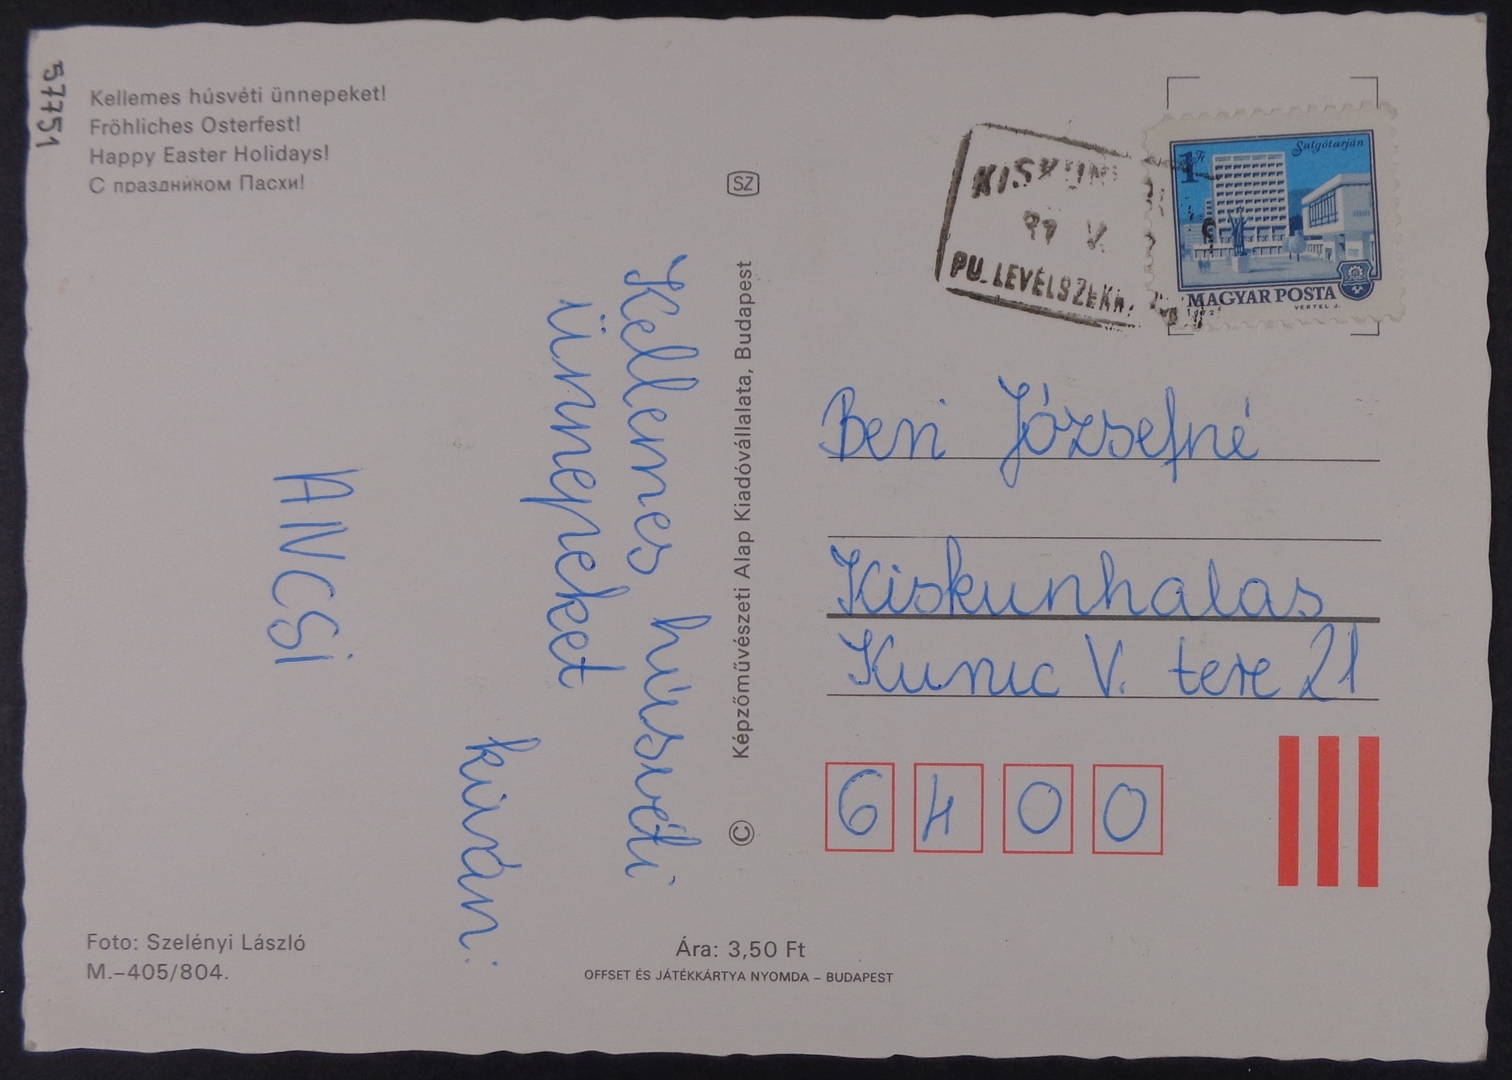 57751
Kellemes húsvéti ünnepeket!
Fröhliches Osterfest!
Happy Easter Holidays!
С праздником Пасхи!
Kellemes húsvéti
ünnepeket
kiván:
ANCSi
Foto: Szelényi László
M.–405/804.
SZ
© Képzőművészeti Alap Kiadóvállalata, Budapest
Ára: 3,50 Ft
OFFSET ÉS JÁTÉKKÁRTYA NYOMDA – BUDAPEST
KISKUN
V
PU. LEVÉLSZEKR.
1 Ft
Salgótarján
MAGYAR POSTA
VERTEL J.
Beni Józsefné
Kiskunhalas
Kunic V. tere 21
6400